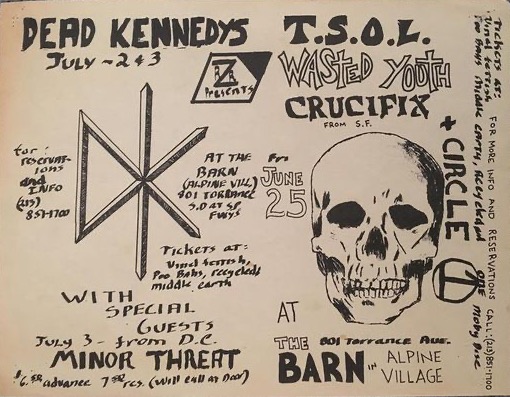 DEAD KENNEDYS
JULY ~ 2 & 3
BZB
Presents
for:
reservat-
ions
and
INFO
(213)
851-1700
DK
AT THE
BARN
(ALPINE VILL)
801 TORRANCE
S.D AT SF
FWYS
Tickets at:
Vinal fettish,
Poo Babs, recycled,
middle earth
WITH
SPECIAL
GUESTS
July 3 - from D.C.
MINOR THREAT
advance
res. (Will call at Door)
T.S.O.L.
WASTED YOUTH
CRUCIFIX
FROM S.F.
+ CIRCLE ONE
Fri
JUNE
25
AT
THE 801 Torrance Ave.
BARN IN ALPINE
VILLAGE
Tickets at:
Vinal fettish
Poo Babs Middle Earth, Recycled Moby Disc
FOR MORE INFO AND RESERVATIONS CALL: (213) 851-1700